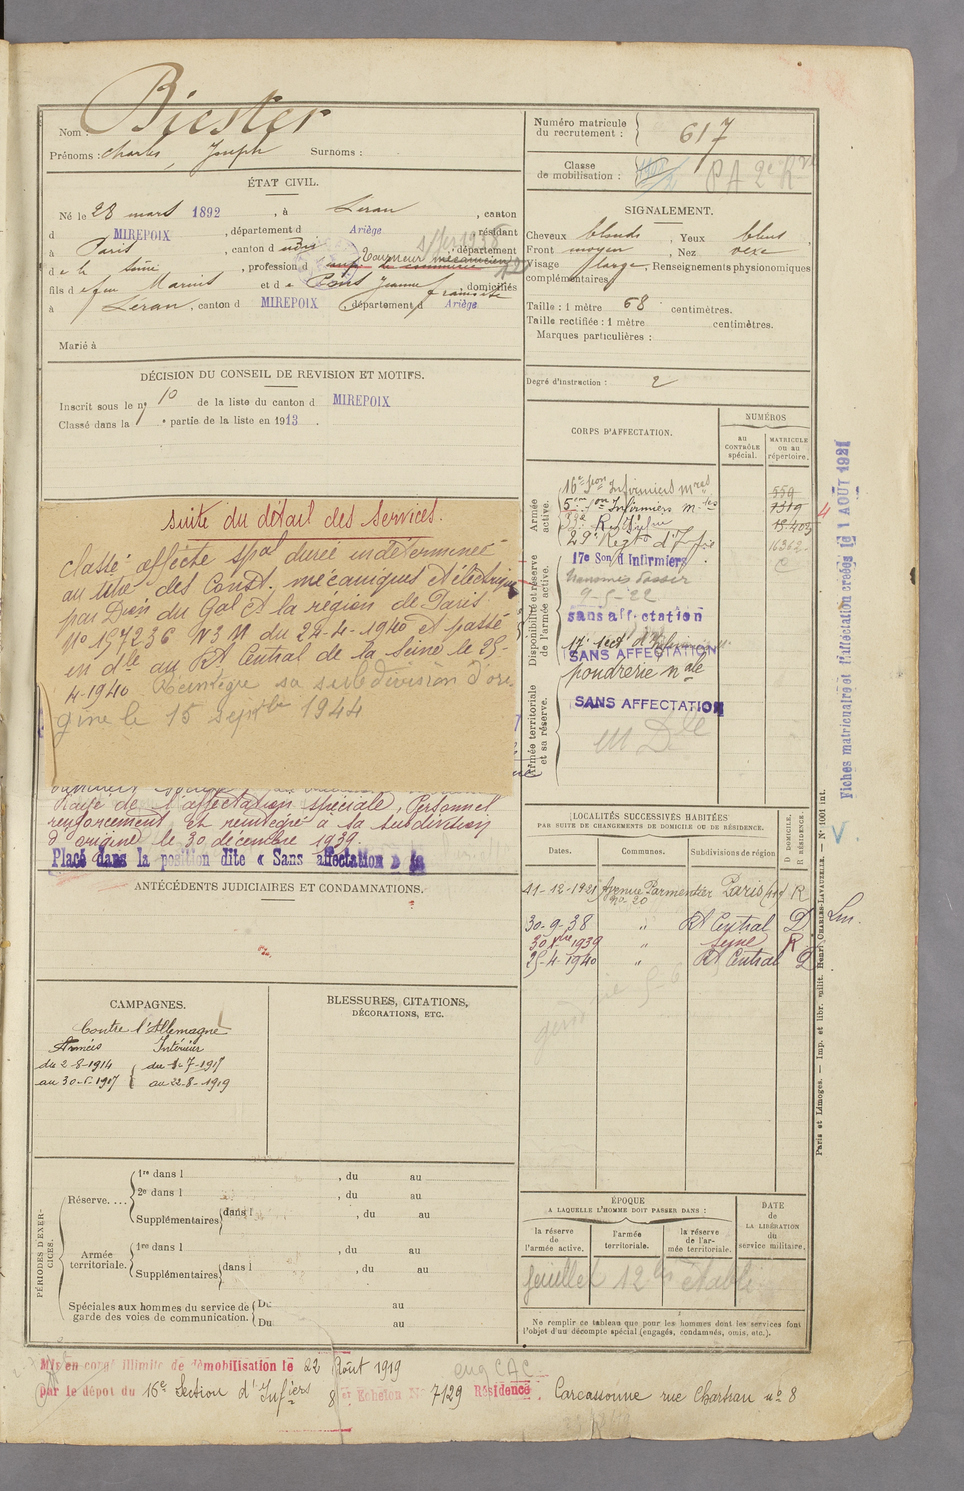 Nom : Biester
Prénoms : Charles, Joseph Surnoms :
ÉTAT CIVIL.
Né le 28 mars 1892, à Léran, canton
d MIREPOIX, département d Ariège, résidant
à Paris, canton d udis, département
d e la Seine, profession d Tourneur mécanicien
emp. de commerce
fils d e feu Marius et d e Pons Jeanne françoise, domiciliés
à Léran, canton d MIREPOIX, département d Ariège
Marié à
DÉCISION DU CONSEIL DE REVISION ET MOTIFS.
Inscrit sous le nº 10 de la liste du canton d MIREPOIX
Classé dans la 1 e partie de la liste en 1913.
suite du détail des services.
Classé affecté spal durée indéterminée
au titre des Const. mécaniques et électrique
par Don du Gal Ct la région de Paris
Nº 157236 N3M du 24-4-1940 et passé
en dle au Rt Central de la Seine le 25-
4-1940. Réintègre sa subdivision d'ori
gine le 15 septbre 1944
Rayé de l'affectation spéciale, Personnel
renforcement et réintégré à sa subdivision
d'origine le 30 décembre 1939.
Placé dans la position dite « Sans affectation » le
ANTÉCÉDENTS JUDICIAIRES ET CONDAMNATIONS.
CAMPAGNES.
Contre l'Allemagne
Armées Intérieur
du 2-8-1914 du 1-7-1917
au 30-6-1917 au 22-8-1919
BLESSURES, CITATIONS,
DÉCORATIONS, ETC.
PÉRIODES D'EXERCICES.
Réserve....
1re dans l , du au
2e dans l , du au
Supplémentaires dans l , du au
Armée territoriale.
1re dans l , du au
Supplémentaires dans l , du au
Spéciales aux hommes du service de
garde des voies de communication.
Du au
Du au
Numéro matricule
du recrutement : 617
Classe
de mobilisation : PA 2e Rve
SIGNALEMENT.
Cheveux blonds, Yeux bleus,
Front moyen, Nez vexe
Visage large, Renseignements physionomiques
complémentaires :
Taille : 1 mètre 68 centimètres.
Taille rectifiée : 1 mètre centimètres.
Marques particulières :
Degré d'instruction : 2
CORPS D'AFFECTATION.
NUMÉROS
au
CONTRÔLE
spécial.
MATRICULE
ou au
répertoire.
Armée
active.
16e Son Infirmiers mres 559
5me Son Infirmiers mtes 7319
Disponibilité et réserve
de l'armée active.
29e Regt d'Inf
17e Son d'Infirmiers
9-5-22
sans affectation
SANS AFFECTATION
poudrerie nale
Armée territoriale
et sa réserve.
SANS AFFECTATION
M Dle
LOCALITÉS SUCCESSIVES HABITÉES
PAR SUITE DE CHANGEMENTS DE DOMICILE OU DE RÉSIDENCE.
Dates. Communes. Subdivisions de région
D DOMICILE.
R RÉSIDENCE.
11-12-1921 Avenue Parmentier Paris R
nº 20
30-9-38 " Rt Central D
30 Xbre 1939 " Seine R
25-4-1940 " Rt Central D
ÉPOQUE
A LAQUELLE L'HOMME DOIT PASSER DANS :
la réserve
de
l'armée active.
l'armée
territoriale.
la réserve
de l'ar-
mée territoriale.
DATE
de
LA LIBÉRATION
du
service militaire.
feuillet 12 bis établi
Ne remplir ce tableau que pour les hommes dont les services font
l'objet d'un décompte spécial (engagés, condamnés, omis, etc.).
Fiches matriculaire et d'affectation créées le 1 AOUT 1921
Paris et Limoges. — Imp. et libr. milit. Henri CHARLES-LAVAUZELLE. — Nº 1001 int.
Mis en congé illimité de démobilisation le 22 Août 1919
par le dépôt du 16e Section d'Infiers 8e Echelon Nº 7129 Résidence. Carcassonne rue Chartran nº 8